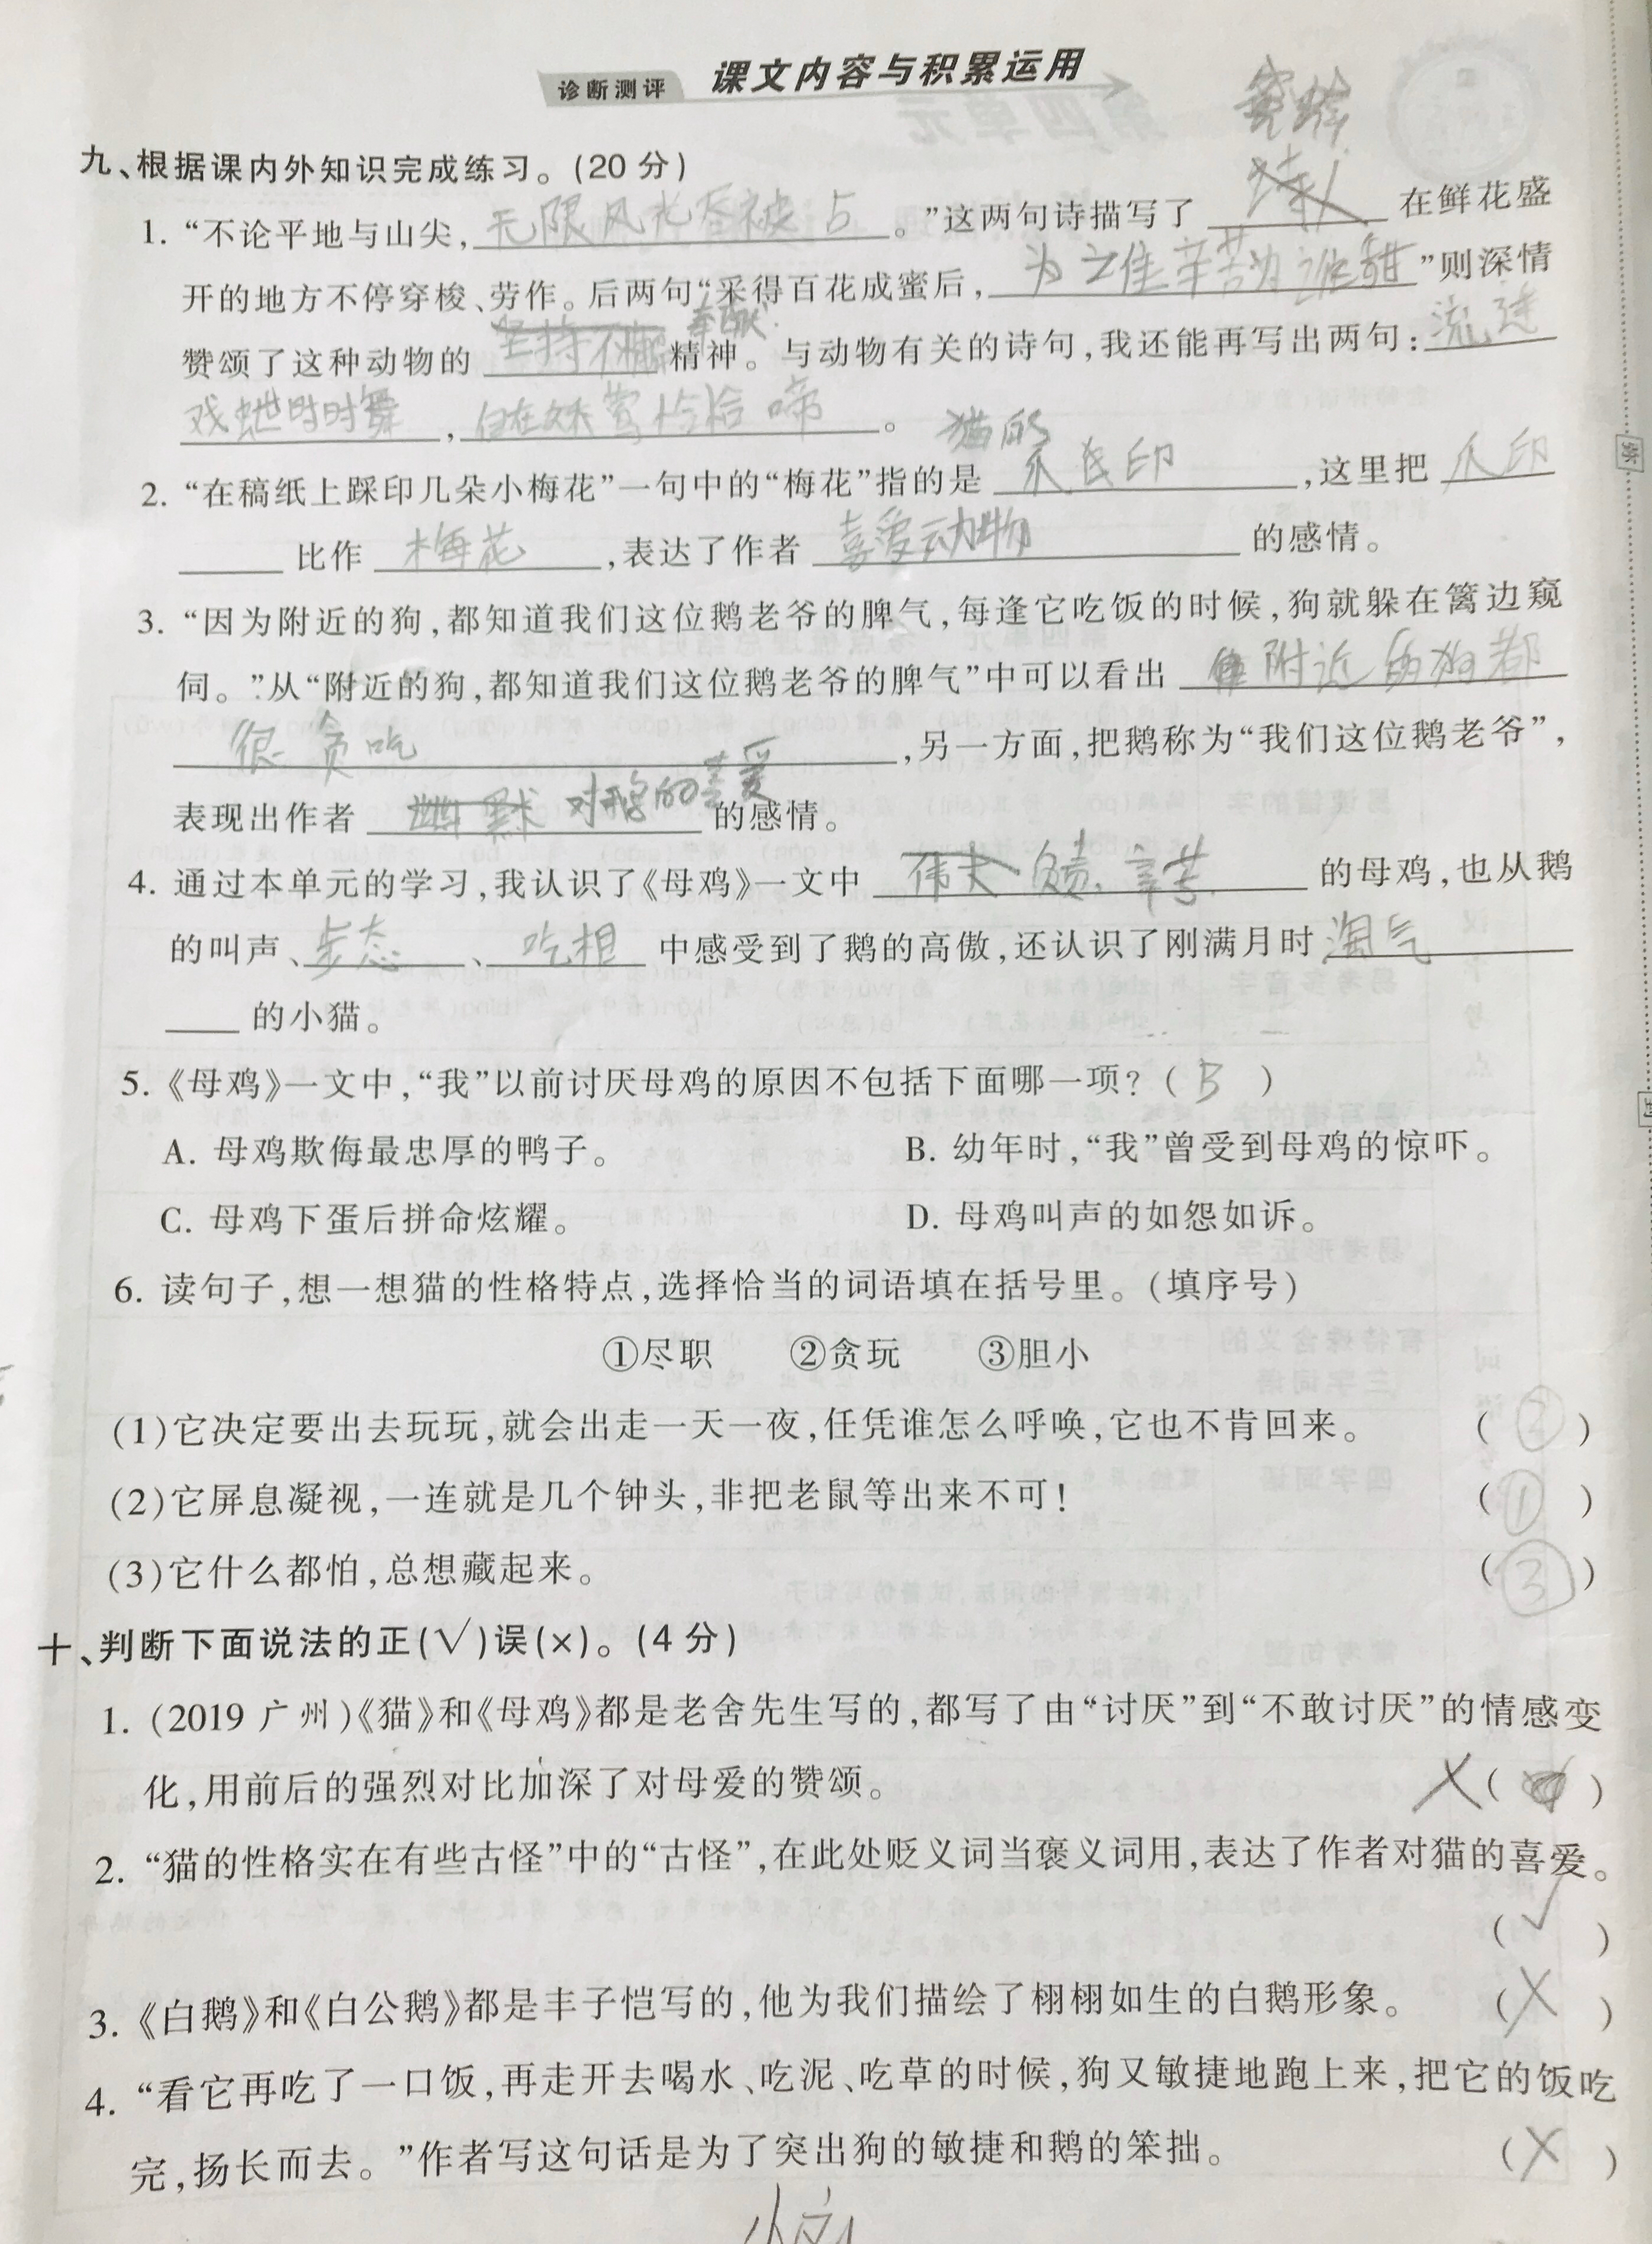 诊断测评 课文内容与积累运用
蜜蜂
九、根据课内外知识完成练习。(20 分)
1. “不论平地与山尖,无限风光尽被占。”这两句诗描写了 诗人 在鲜花盛
开的地方不停穿梭、劳作。后两句“采得百花成蜜后,为谁辛苦为谁甜”则深情
赞颂了这种动物的 坚持不懈 奉献 精神。与动物有关的诗句,我还能再写出两句:流连
戏蝶时时舞,自在娇莺恰恰啼。
2. “在稿纸上踩印几朵小梅花”一句中的“梅花”指的是 猫的 爪印,这里把 爪印
比作 梅花,表达了作者 喜爱动物 的感情。
3. “因为附近的狗,都知道我们这位鹅老爷的脾气,每逢它吃饭的时候,狗就躲在篱边窥
伺。”从“附近的狗,都知道我们这位鹅老爷的脾气”中可以看出 附近的狗都
很贪吃,另一方面,把鹅称为“我们这位鹅老爷”,
表现出作者 幽默 对鹅的喜爱 的感情。
4. 通过本单元的学习,我认识了《母鸡》一文中 伟大 负责、辛苦 的母鸡,也从鹅
的叫声、步态、吃相 中感受到了鹅的高傲,还认识了刚满月时 淘气
的小猫。
5.《母鸡》一文中,“我”以前讨厌母鸡的原因不包括下面哪一项?( B )
A. 母鸡欺侮最忠厚的鸭子。 B. 幼年时,“我”曾受到母鸡的惊吓。
C. 母鸡下蛋后拼命炫耀。 D. 母鸡叫声的如怨如诉。
6. 读句子,想一想猫的性格特点,选择恰当的词语填在括号里。(填序号)
①尽职 ②贪玩 ③胆小
(1)它决定要出去玩玩,就会出走一天一夜,任凭谁怎么呼唤,它也不肯回来。 ( ② )
(2)它屏息凝视,一连就是几个钟头,非把老鼠等出来不可! ( ① )
(3)它什么都怕,总想藏起来。 ( ③ )
十、判断下面说法的正(√)误(×)。(4 分)
1. (2019 广州)《猫》和《母鸡》都是老舍先生写的,都写了由“讨厌”到“不敢讨厌”的情感变
化,用前后的强烈对比加深了对母爱的赞颂。 ×( )
2. “猫的性格实在有些古怪”中的“古怪”,在此处贬义词当褒义词用,表达了作者对猫的喜爱。
( √ )
3.《白鹅》和《白公鹅》都是丰子恺写的,他为我们描绘了栩栩如生的白鹅形象。 ( × )
4. “看它再吃了一口饭,再走开去喝水、吃泥、吃草的时候,狗又敏捷地跑上来,把它的饭吃
完,扬长而去。”作者写这句话是为了突出狗的敏捷和鹅的笨拙。 ( × )